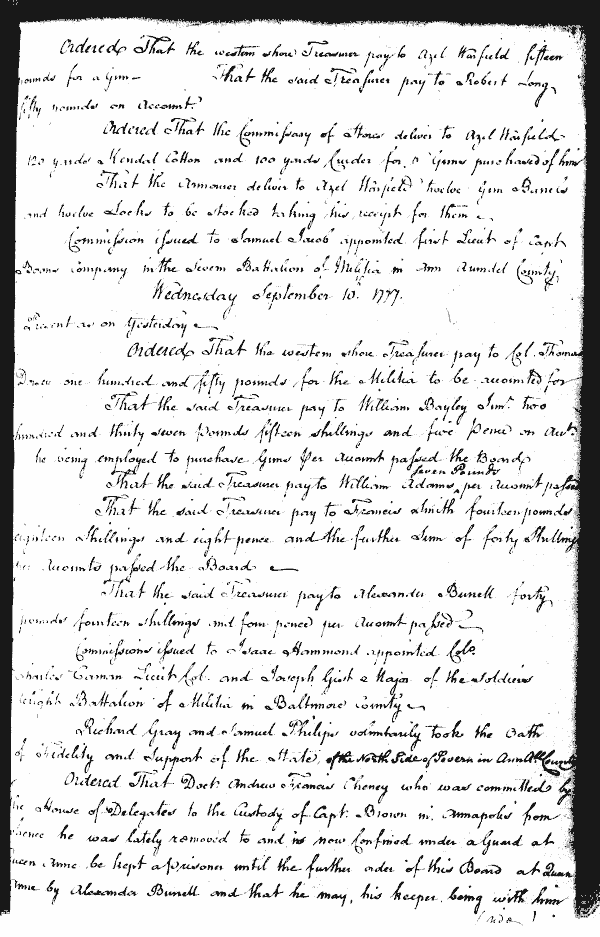 Ordered That the western shore Treasurer pay to Azel Warfield fifteen
pounds for a Gun — That the said Treasurer pay to Robert Long
fifty pounds on account.
Ordered That the Commissary of Stores deliver to Azel Warfield
120 yards Kendal Cotton and 100 yards for Guns purchased of him
That the Armourer deliver to Azel Warfield twelve Gun Barrels
and twelve Locks to be stocked taking his receipt for them
Commission issued to Samuel Jacob appointed first Lieut of Capt
Boons Company in the Severn Battalion of Militia in Ann Arundel County
Wednesday September 10th 1777.
Present as on Yesterday
Ordered That the western shore Treasurer pay to Col. Thomas
Dorsey one hundred and fifty pounds for the Militia to be accounted for
That the said Treasurer pay to William Bayley Junr. two
hundred and thirty seven Pounds fifteen shillings and five Pence on Acct.
he being employed to purchase Guns Per Account passed the Board
seven Pounds
That the said Treasurer pay to William Adams per Account passed
That the said Treasurer pay to Francis Smith fourteen pounds
eighteen Shillings and eight pence and the further Sum of forty Shillings
per Accounts passed the Board
That the said Treasurer pay to Alexander Burrell forty
pounds fourteen shillings and four pence per Account passed
Commissions issued to Isaac Hammond appointed Colo.
Charles Carnan Lieut Col. and Joseph Gist Major of the Soldiers
Delight Battalion of Militia in Baltimore County
Richard Gray and Samuel Philips voluntarily took the Oath
of Fidelity and Support of the State, of the North Side of Severn in Ann Al County
Ordered That Doctr. Andrew Francis Cheney who was committed by
the House of Delegates to the Custody of Capt. Brown in Annapolis from
whence he was lately removed to and is now Confined under a Guard at
Queen Anne be kept a prisoner until the further order of this Board at Queen
Anne by Alexander Burrell and that he may, his keeper being with him